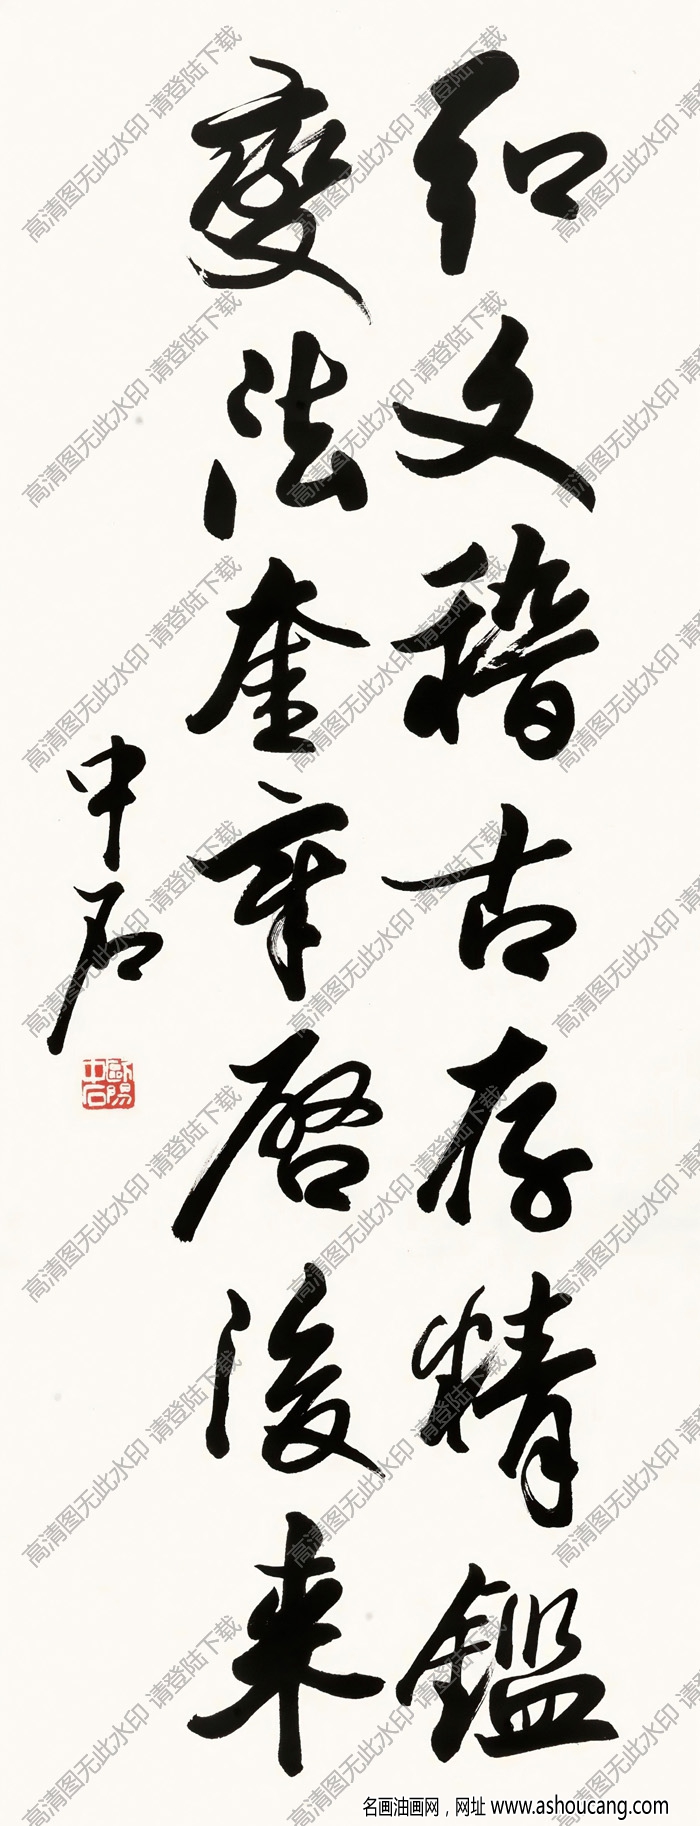 和文稽古存精鑑
變法奎章啓後来
中石
歐陽中石
高清图无此水印 请登陆下载
名画油画网，网址 www.ashoucang.com